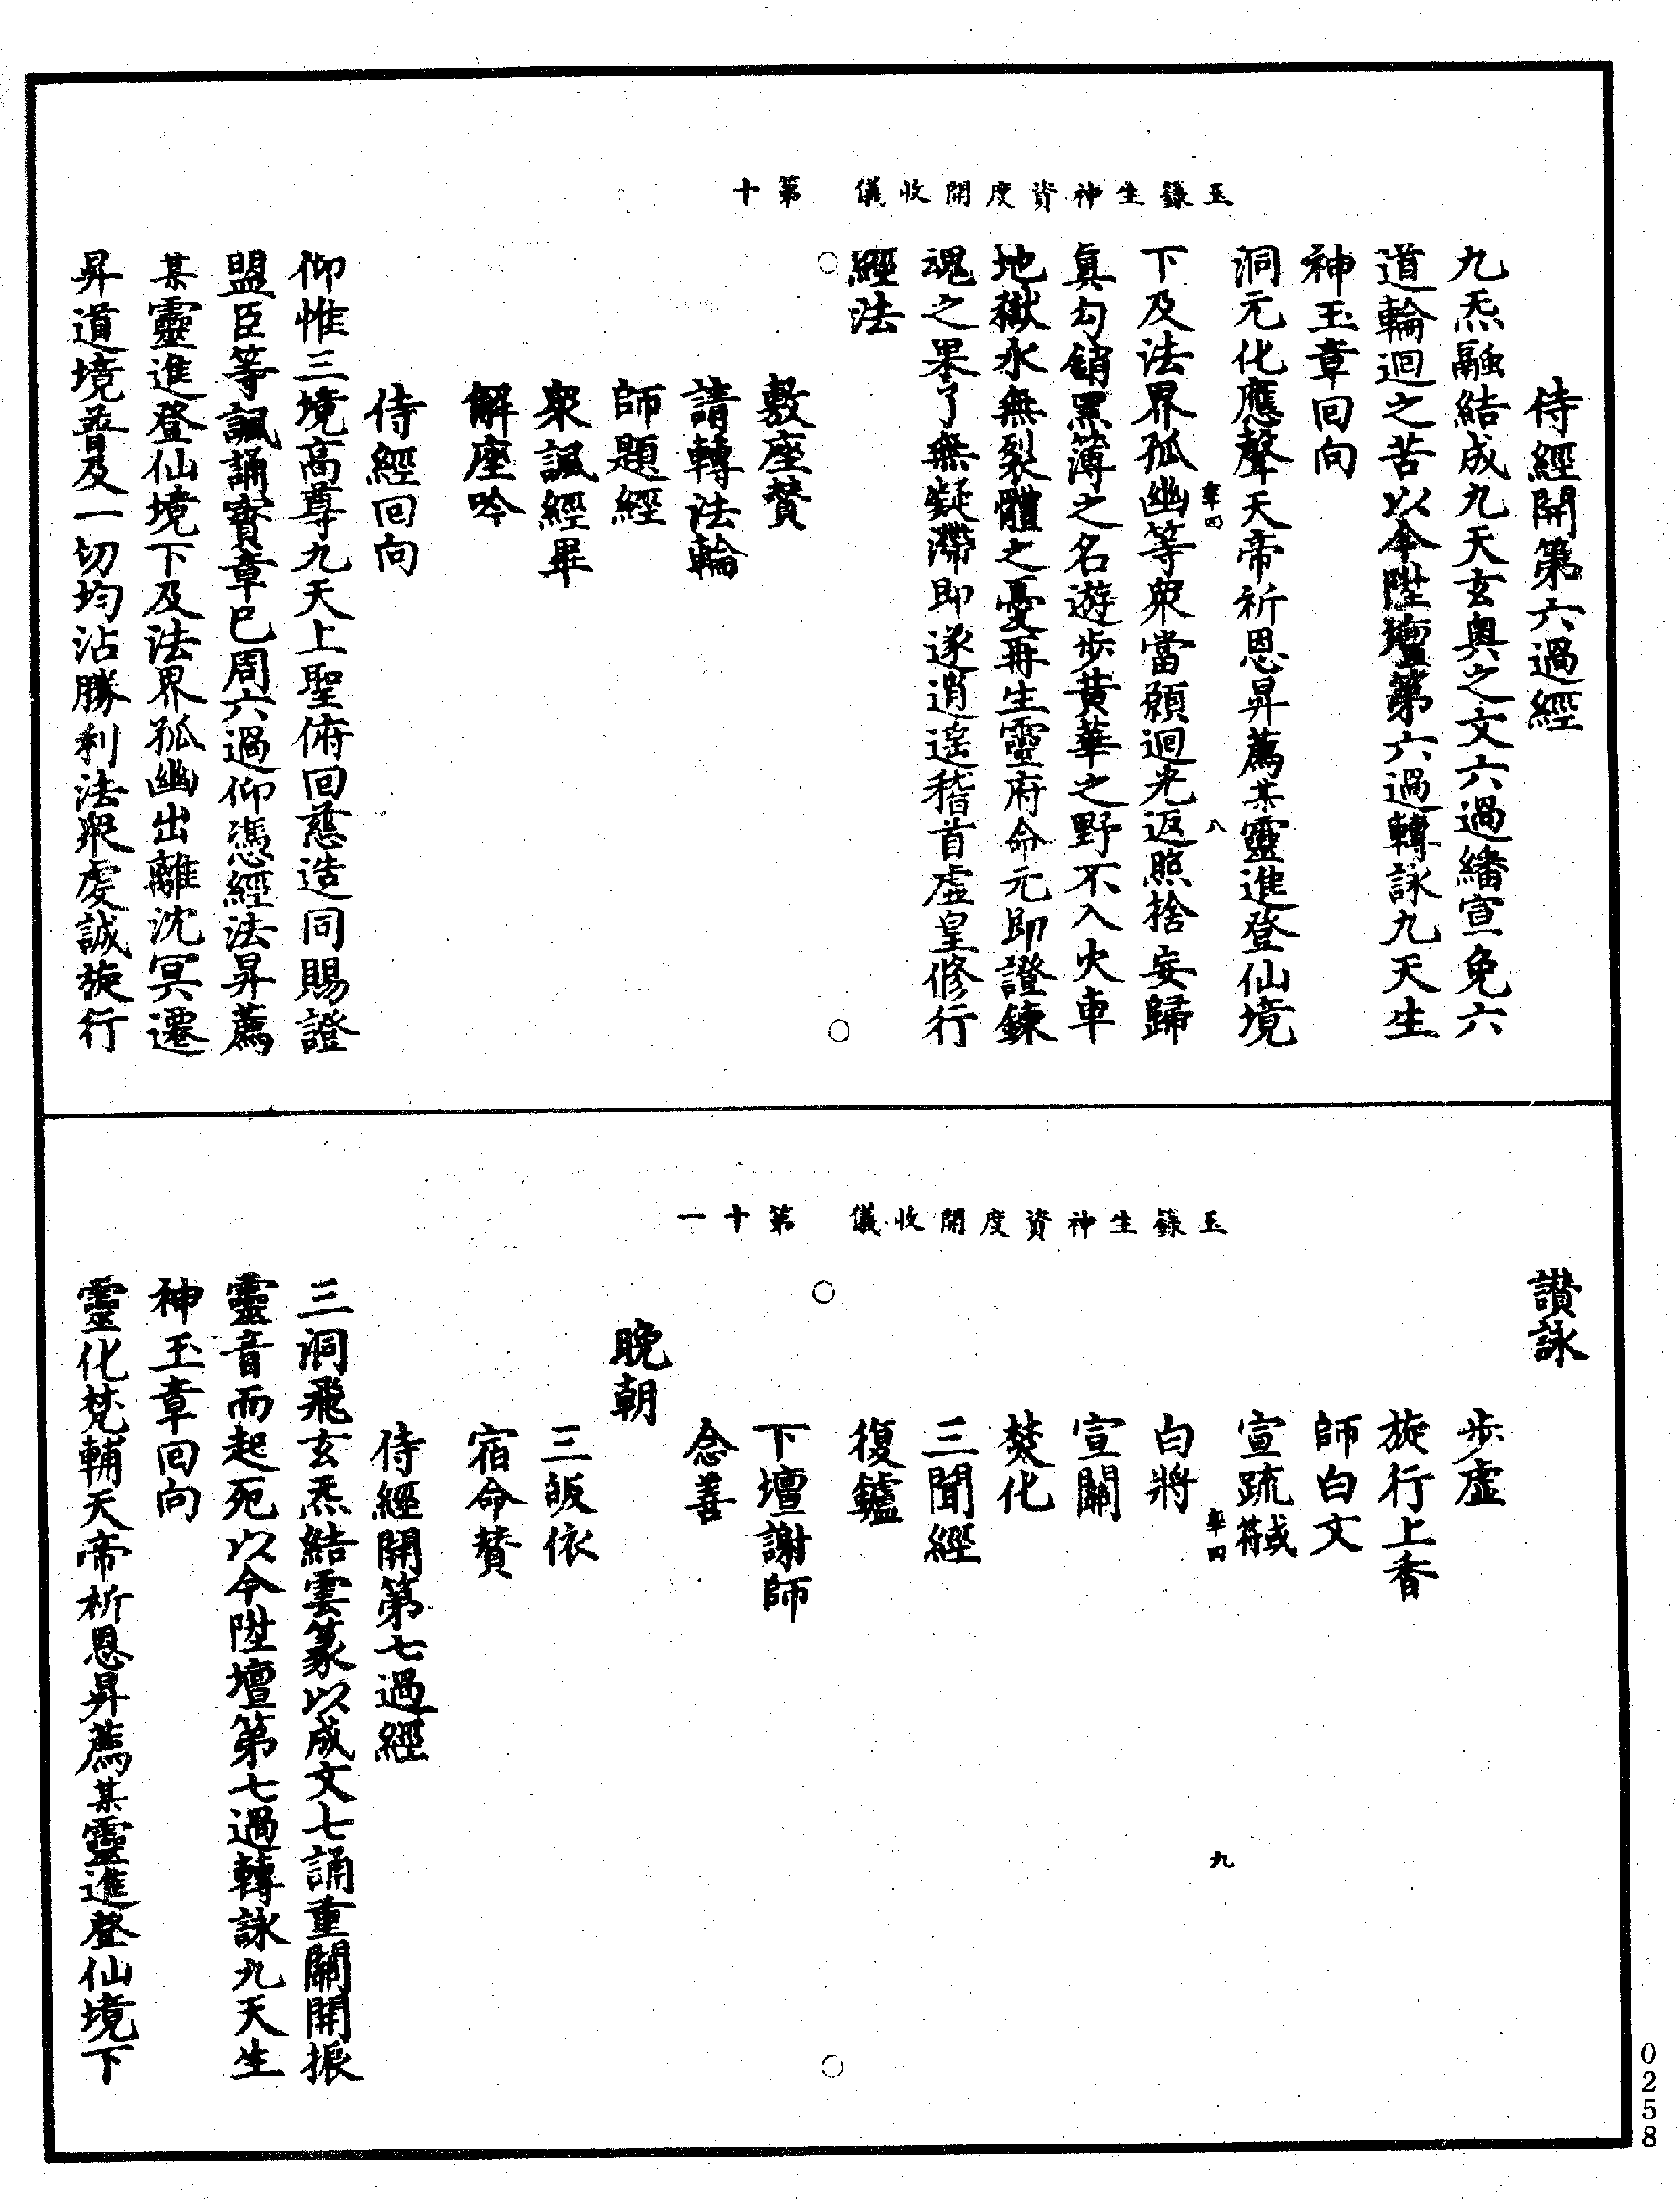 玉籙生神資度開收儀　第十
侍經開第六過經
九炁融結成九天玄奥之文六過繙宣免六
道輪迴之苦以今陞壇第六過轉詠九天生
神玉章回向
洞元化應聲天帝祈恩昇薦某靈進登仙境
下及法界孤幽等衆當願迴光返照捨妄歸
真勾銷黑簿之名遊步黄華之野不入火車
地獄永無裂體之憂再生靈府命元即證鍊
魂之果了無疑滯即遂逍遥稽首虚皇修行
經法
敷座贊
請轉法輪
師題經
衆諷經畢
解座吟
侍經回向
仰惟三境高尊九天上聖俯回慈造同賜證
盟臣等諷誦寳章已周六過仰憑經法昇薦
某靈進登仙境下及法界孤幽出離沈冥遷
昇道境普及一切均沾勝利法衆虔誠旋行
八
玉籙生神資度開收儀　第十一
讃詠
步虚
旋行上香
師白文
宣疏或符
白將
宣關
焚化
三聞經
復鑪
下壇謝師
念善
晚朝
三皈依
宿命贊
侍經開第七過經
三洞飛玄炁結雲篆以成文七誦重關開振
靈音而起死以今陞壇第七過轉詠九天生
神玉章回向
靈化梵輔天帝祈恩昇薦某靈進登仙境下
九
0258